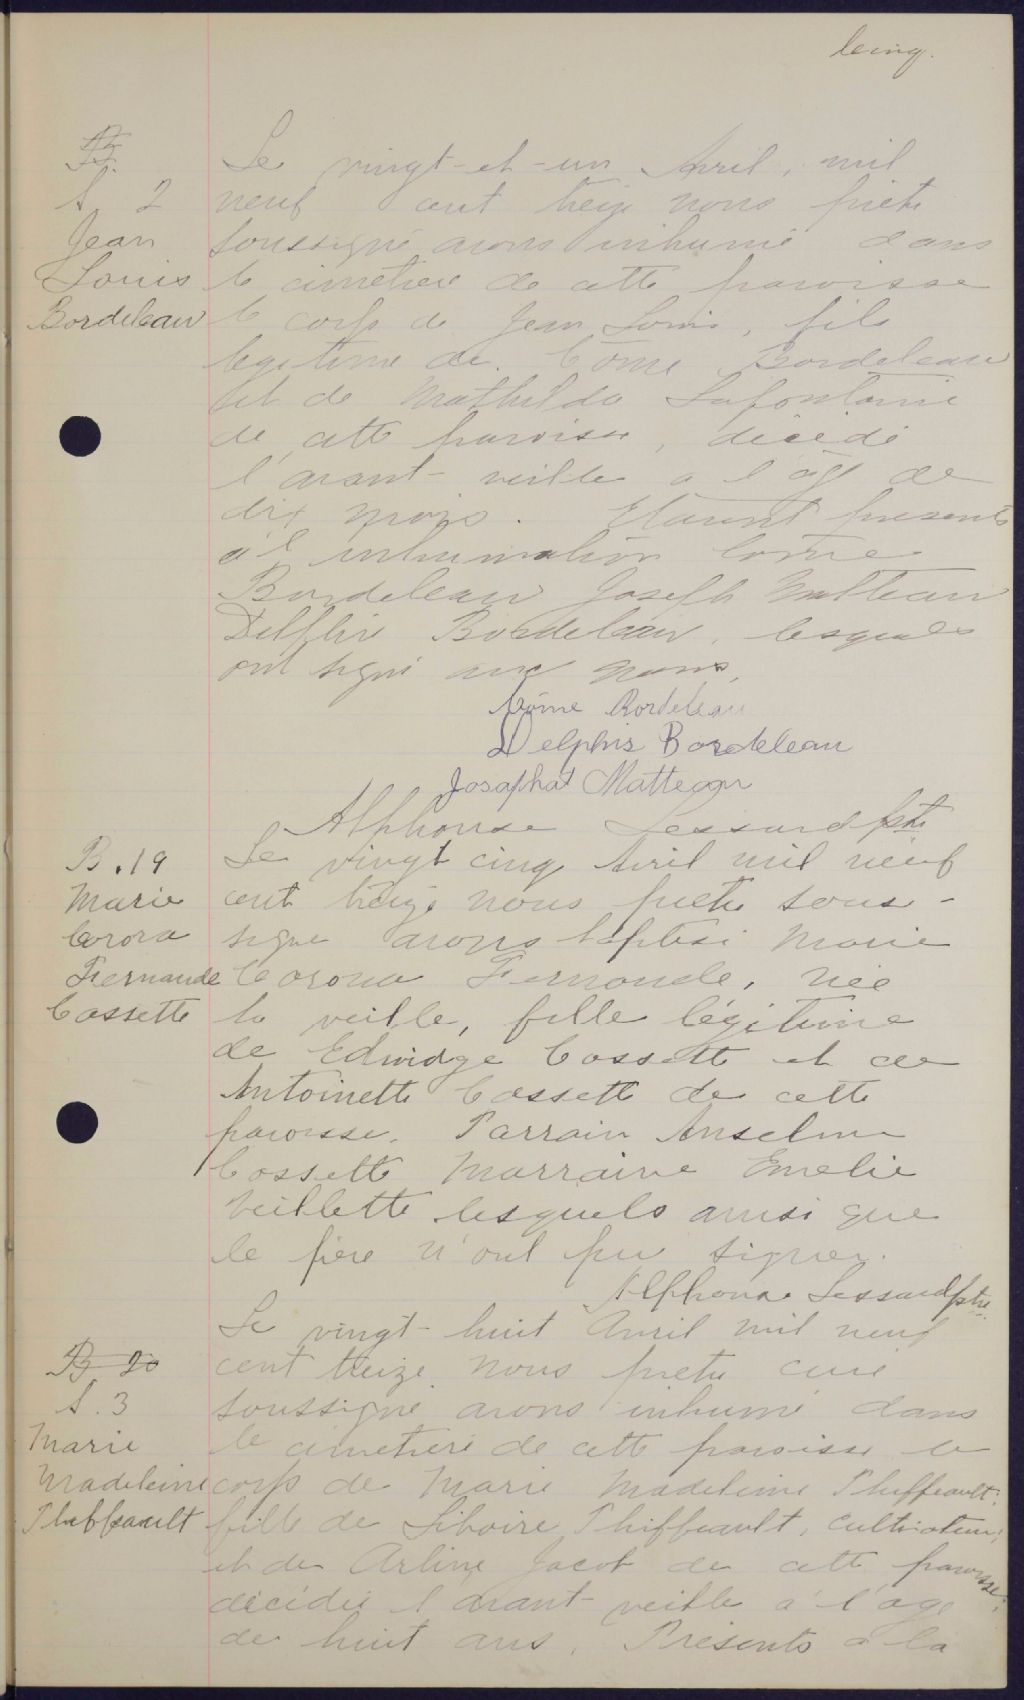 cinq.
B.
S. 2
Jean
Louis
Bordeleau
Le vingt-et-un Avril, mil
neuf cent treize nous prêtre
soussigné avons inhumé dans
le cimetière de cette paroisse
le corps de Jean Louis, fils
légitime de Côme Bordeleau
et de Mathilde Lafontaine
de cette paroisse, décédé
l'avant-veille a l'âge de
dix mois. Etaient présents
à l'inhumation Côme
Bordeleau Joseph Matteau
Delphis Bordeleau, lesquels
ont signé avec nous,
Côme Bordeleau
Delphis Bordeleau
Josaphat Matteau
Alphonse Lessard ptre
B. 19
Marie
Corora
Fernande
Cossette
Le vingt cinq Avril mil neuf
cent treize nous prêtre sous-
signé avons baptisé Marie
Corona Fernande, née
la veille, fille légitime
de Edwidge Cossette et de
Antoinette Cossette de cette
paroisse. Parrain Anselme
Cossette Marraine Emelie
Veillette lesquels ainsi que
le père n'ont pu signer.
Alphonse Lessard ptre.
B 20
S. 3
Marie
Madeleine
Thiffeault
Le vingt-huit Avril mil neuf
cent treize nous prêtre curé
soussigné avons inhumé dans
le cimetière de cette paroisse le
corps de Marie Madeleine Thiffeault,
fille de Liboire Thiffeault, cultivateur,
et de Arline Jacob de cette paroisse,
décédée l'avant-veille à l'âge
de huit ans. Présents à la